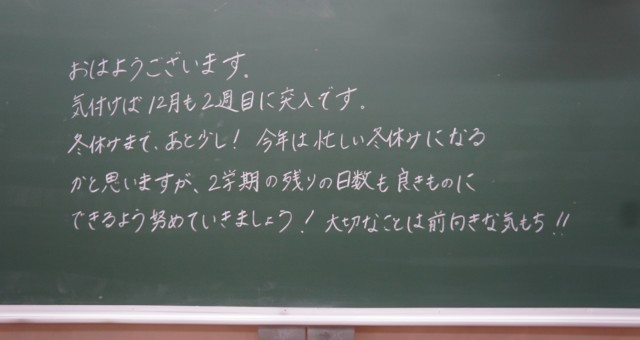 おはようございます.
気付けば12月も2週目に突入です.
冬休みまで、あと少し! 今年は忙しい冬休みになる
かと思いますが、2学期の残りの日数も良きものに
できるよう努めていきましょう! 大切なことは前向きな気もち!!